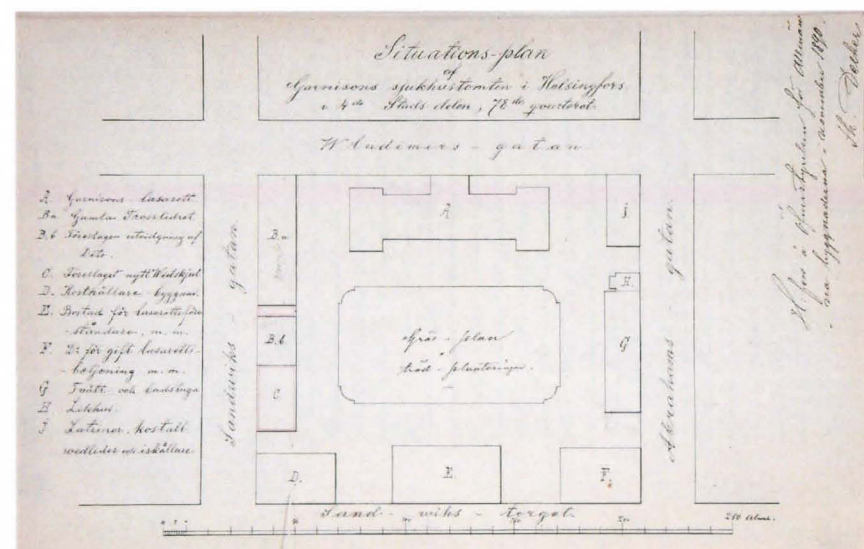 Situations-plan
af
Garnisons sjukhustomten i Helsingfors
i 4de Stads delen, 78de qvarteret.
Wladimirs - gatan
A. Garnisons lasarett
B.a Gamla Trossbodrat
B.b Föreslagen utvidgning af
Dito.
C. Föreslaget nytt Wedskjul
D. Kosthållare byggnad.
E. Bostad för lasaretts före-
- ståndare, m. m.
F. D:o för gift lasaretts-
- betjening m. m.
G Tvätt och badstuga
H Likhus.
J Latriner, kostall
wedlider och iskällare
Sandwiks - gatan
Abrahams - gatan
A
B.a
B.b
C.
D.
E.
F.
G
H.
J.
Gräs - plan
träd - planteringar.
Sand - wiks - torget.
250 alnar.
H:fors i Öfverstyrelsen för Allmän-
na byggnaderna i november 1890.
Th. Decker